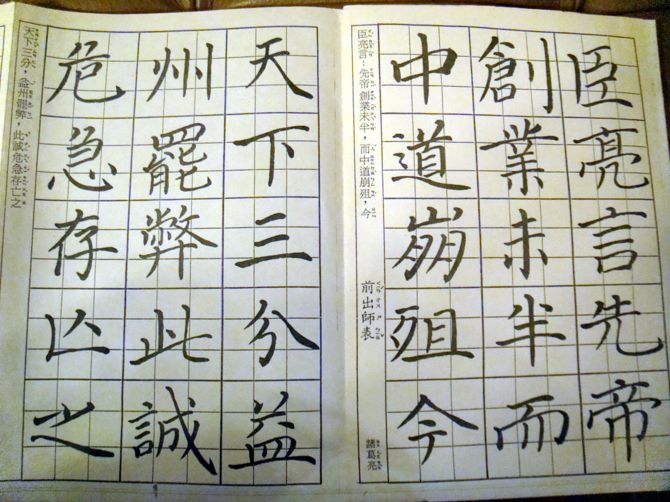 臣亮言先帝
創業未半而
中道崩殂今
臣亮言:先帝創業未半,而中道崩殂,今
前出師表
諸葛亮
天下三分益
州罷弊此誠
危急存亡之
天下三分,益州罷弊,此誠危急存亡之